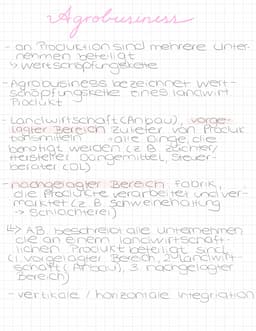 Agrobusiness
- an Produktion sind mehrere Unter-
nehmen beteiligt
↳ Wertschöpfungskette
- Agrobusiness bezeichnet Wert-
schöpfungskette eines landwirt.
Produkt
- Landwirtschaft (Anbau), vorge-
lagter Bereich Zuliefer von Produk
tionsmitteln → alle Dinge, die
benötigt werden (z.B. Züchter/
Hersteller Düngemittel, Steuer-
berater (DL)
- nachgelagter Bereich Fabrik,
die Produkte verarbeitet und ver-
marktet (z.B. Schweinehaltung
→ Schlachterei)
↳ AB. beschreibt alle Unternehmen
die an einem landwirtschaft-
lichen Produkt beteiligt sind
(1. vorgelagter Bereich, 2. Landwirt-
schaft (Anbau), 3. nachgelagter
Bereich)
- vertikale / horizontale Integration